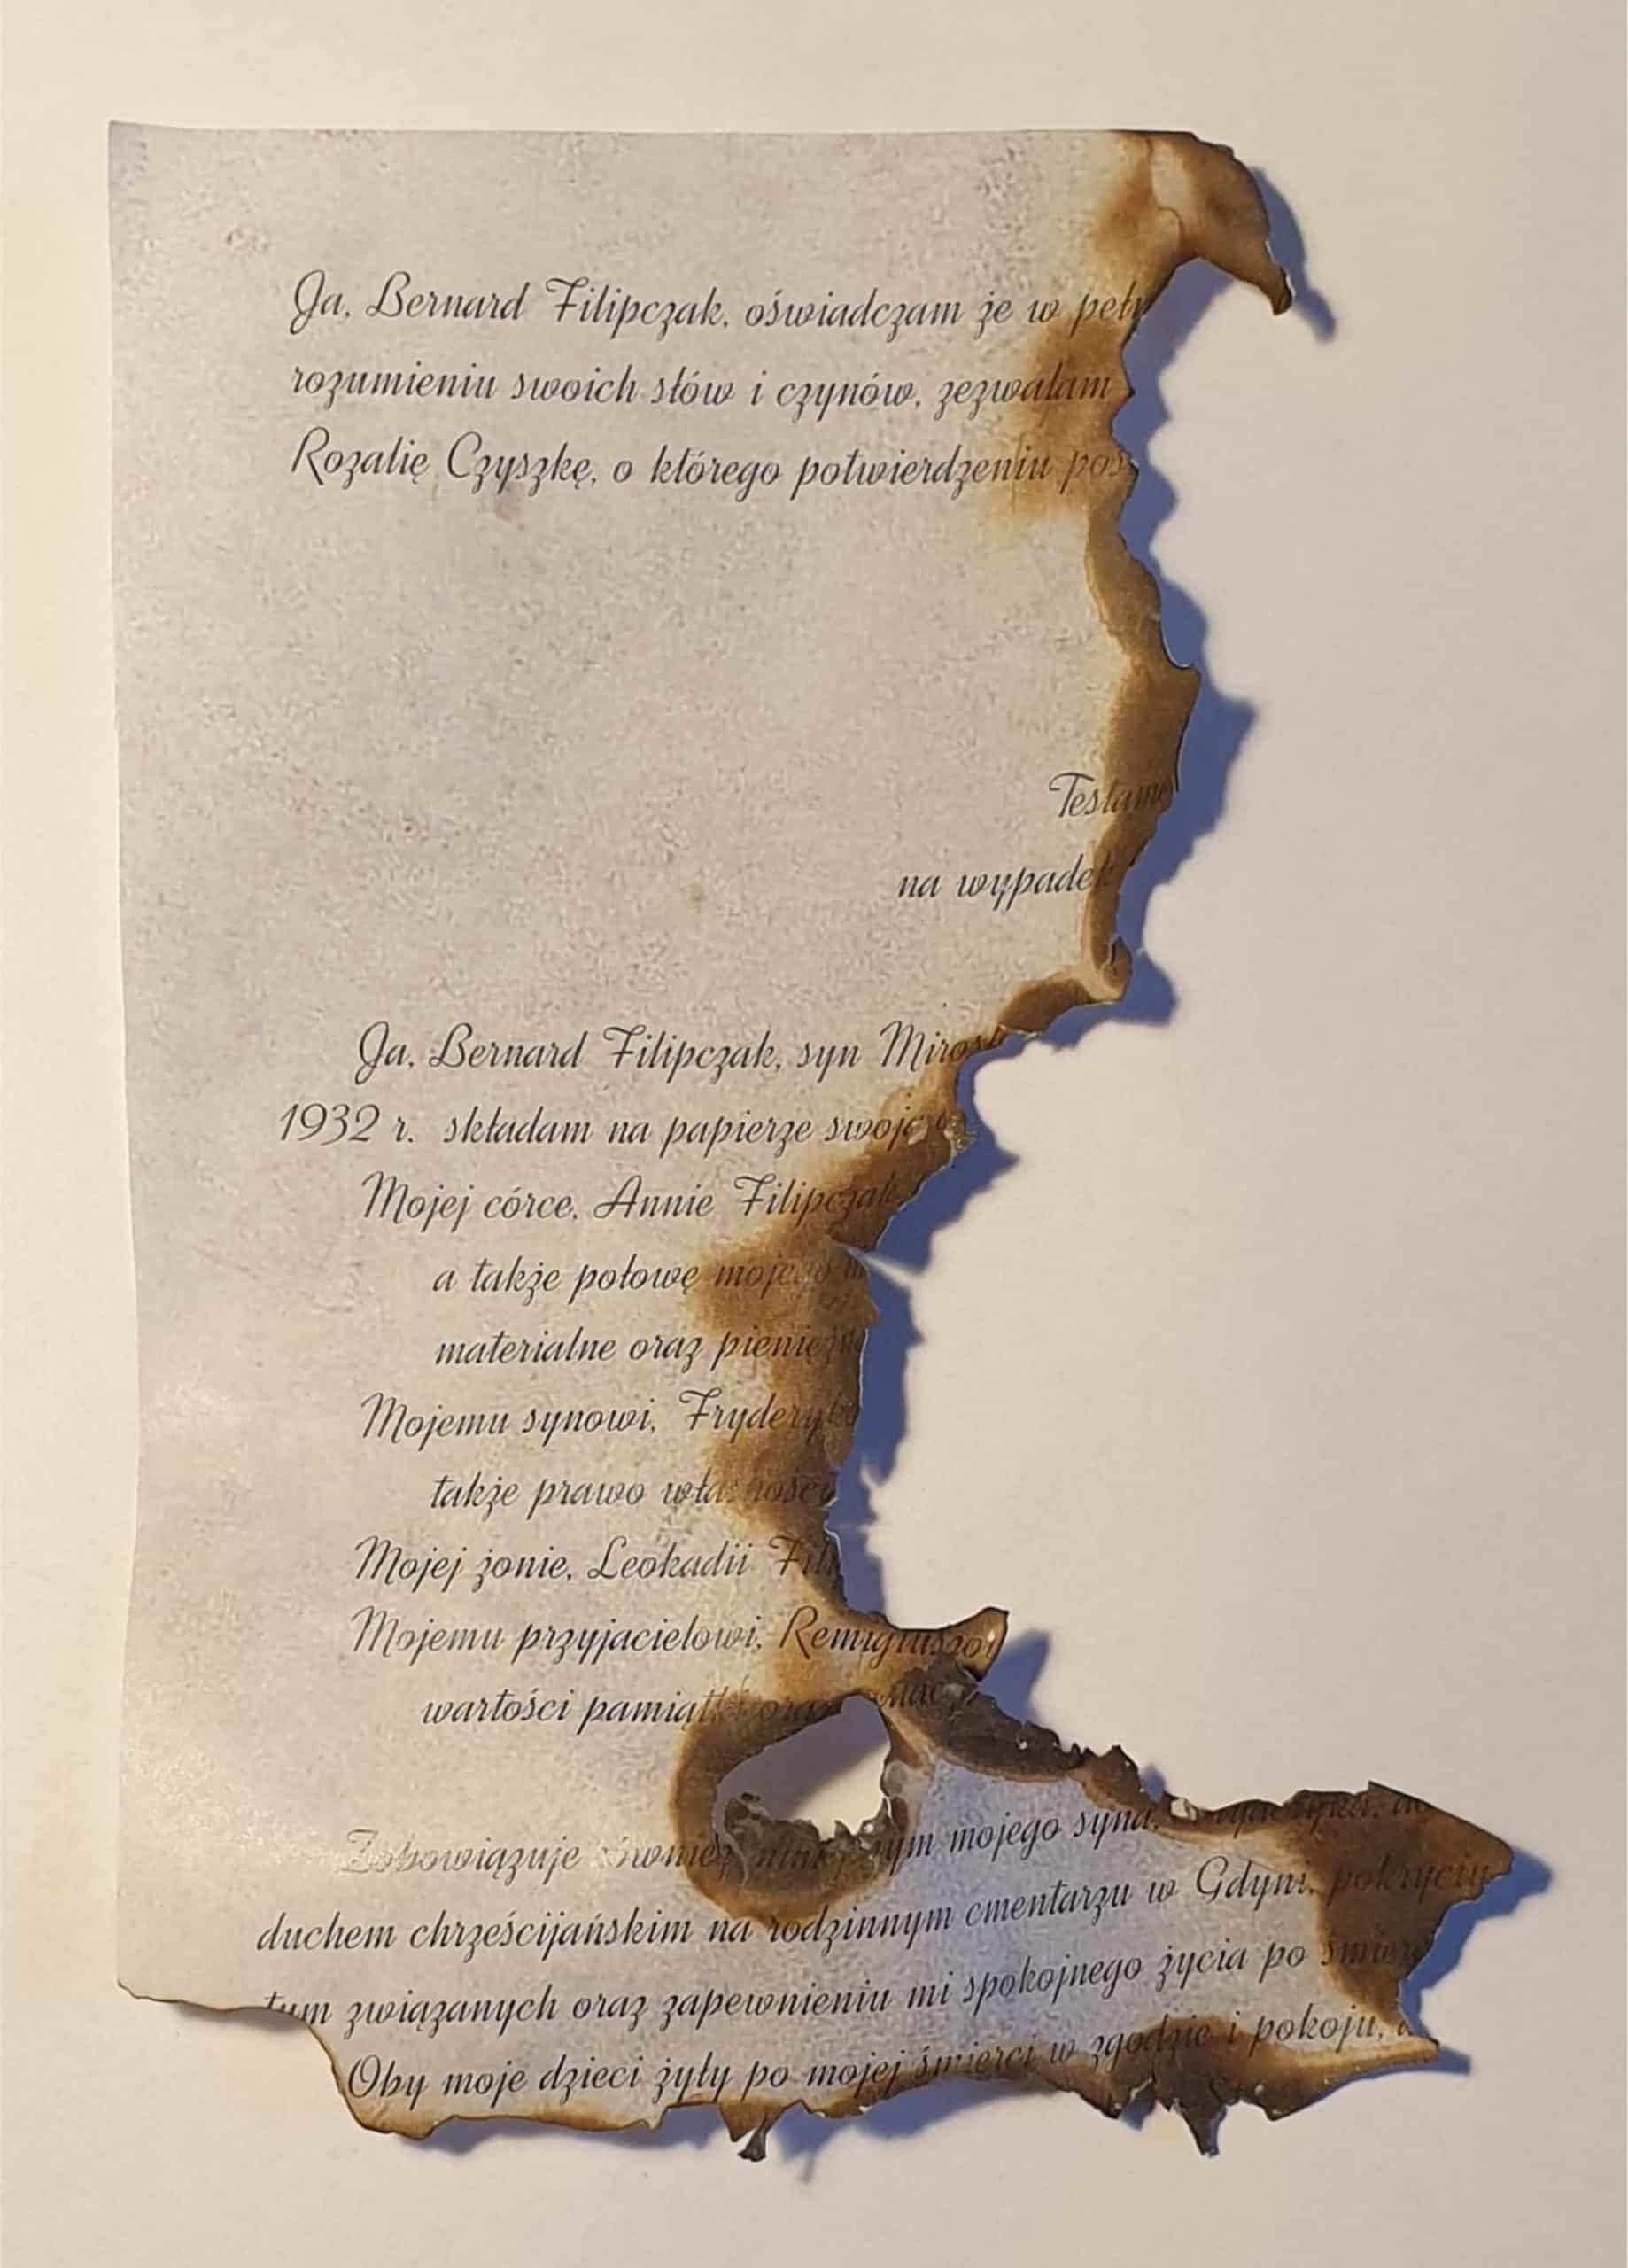 Ja, Bernard Filipczak, oświadczam że w peł
rozumieniu swoich słów i czynów, zezwalam
Rozalię Czyszkę, o którego potwierdzeniu pos
Testame
na wypadek
Ja, Bernard Filipczak, syn Mirosł
1932 r. składam na papierze swoją
Mojej córce, Annie Filipczak
a także połowę mojego
materialne oraz pienięż
Mojemu synowi, Fryderyk
także prawo własności
Mojej żonie, Leokadii Fili
Mojemu przyjacielowi, Remigiuszow
wartości pamiątki oraz
Zobowiązuje również mojego syna,
duchem chrześcijańskim na rodzinnym cmentarzu w Gdyni, pokryciu
tym związanych oraz zapewnieniu mi spokojnego życia po śmier
Oby moje dzieci żyły po mojej śmierci w zgodzie i pokoju,